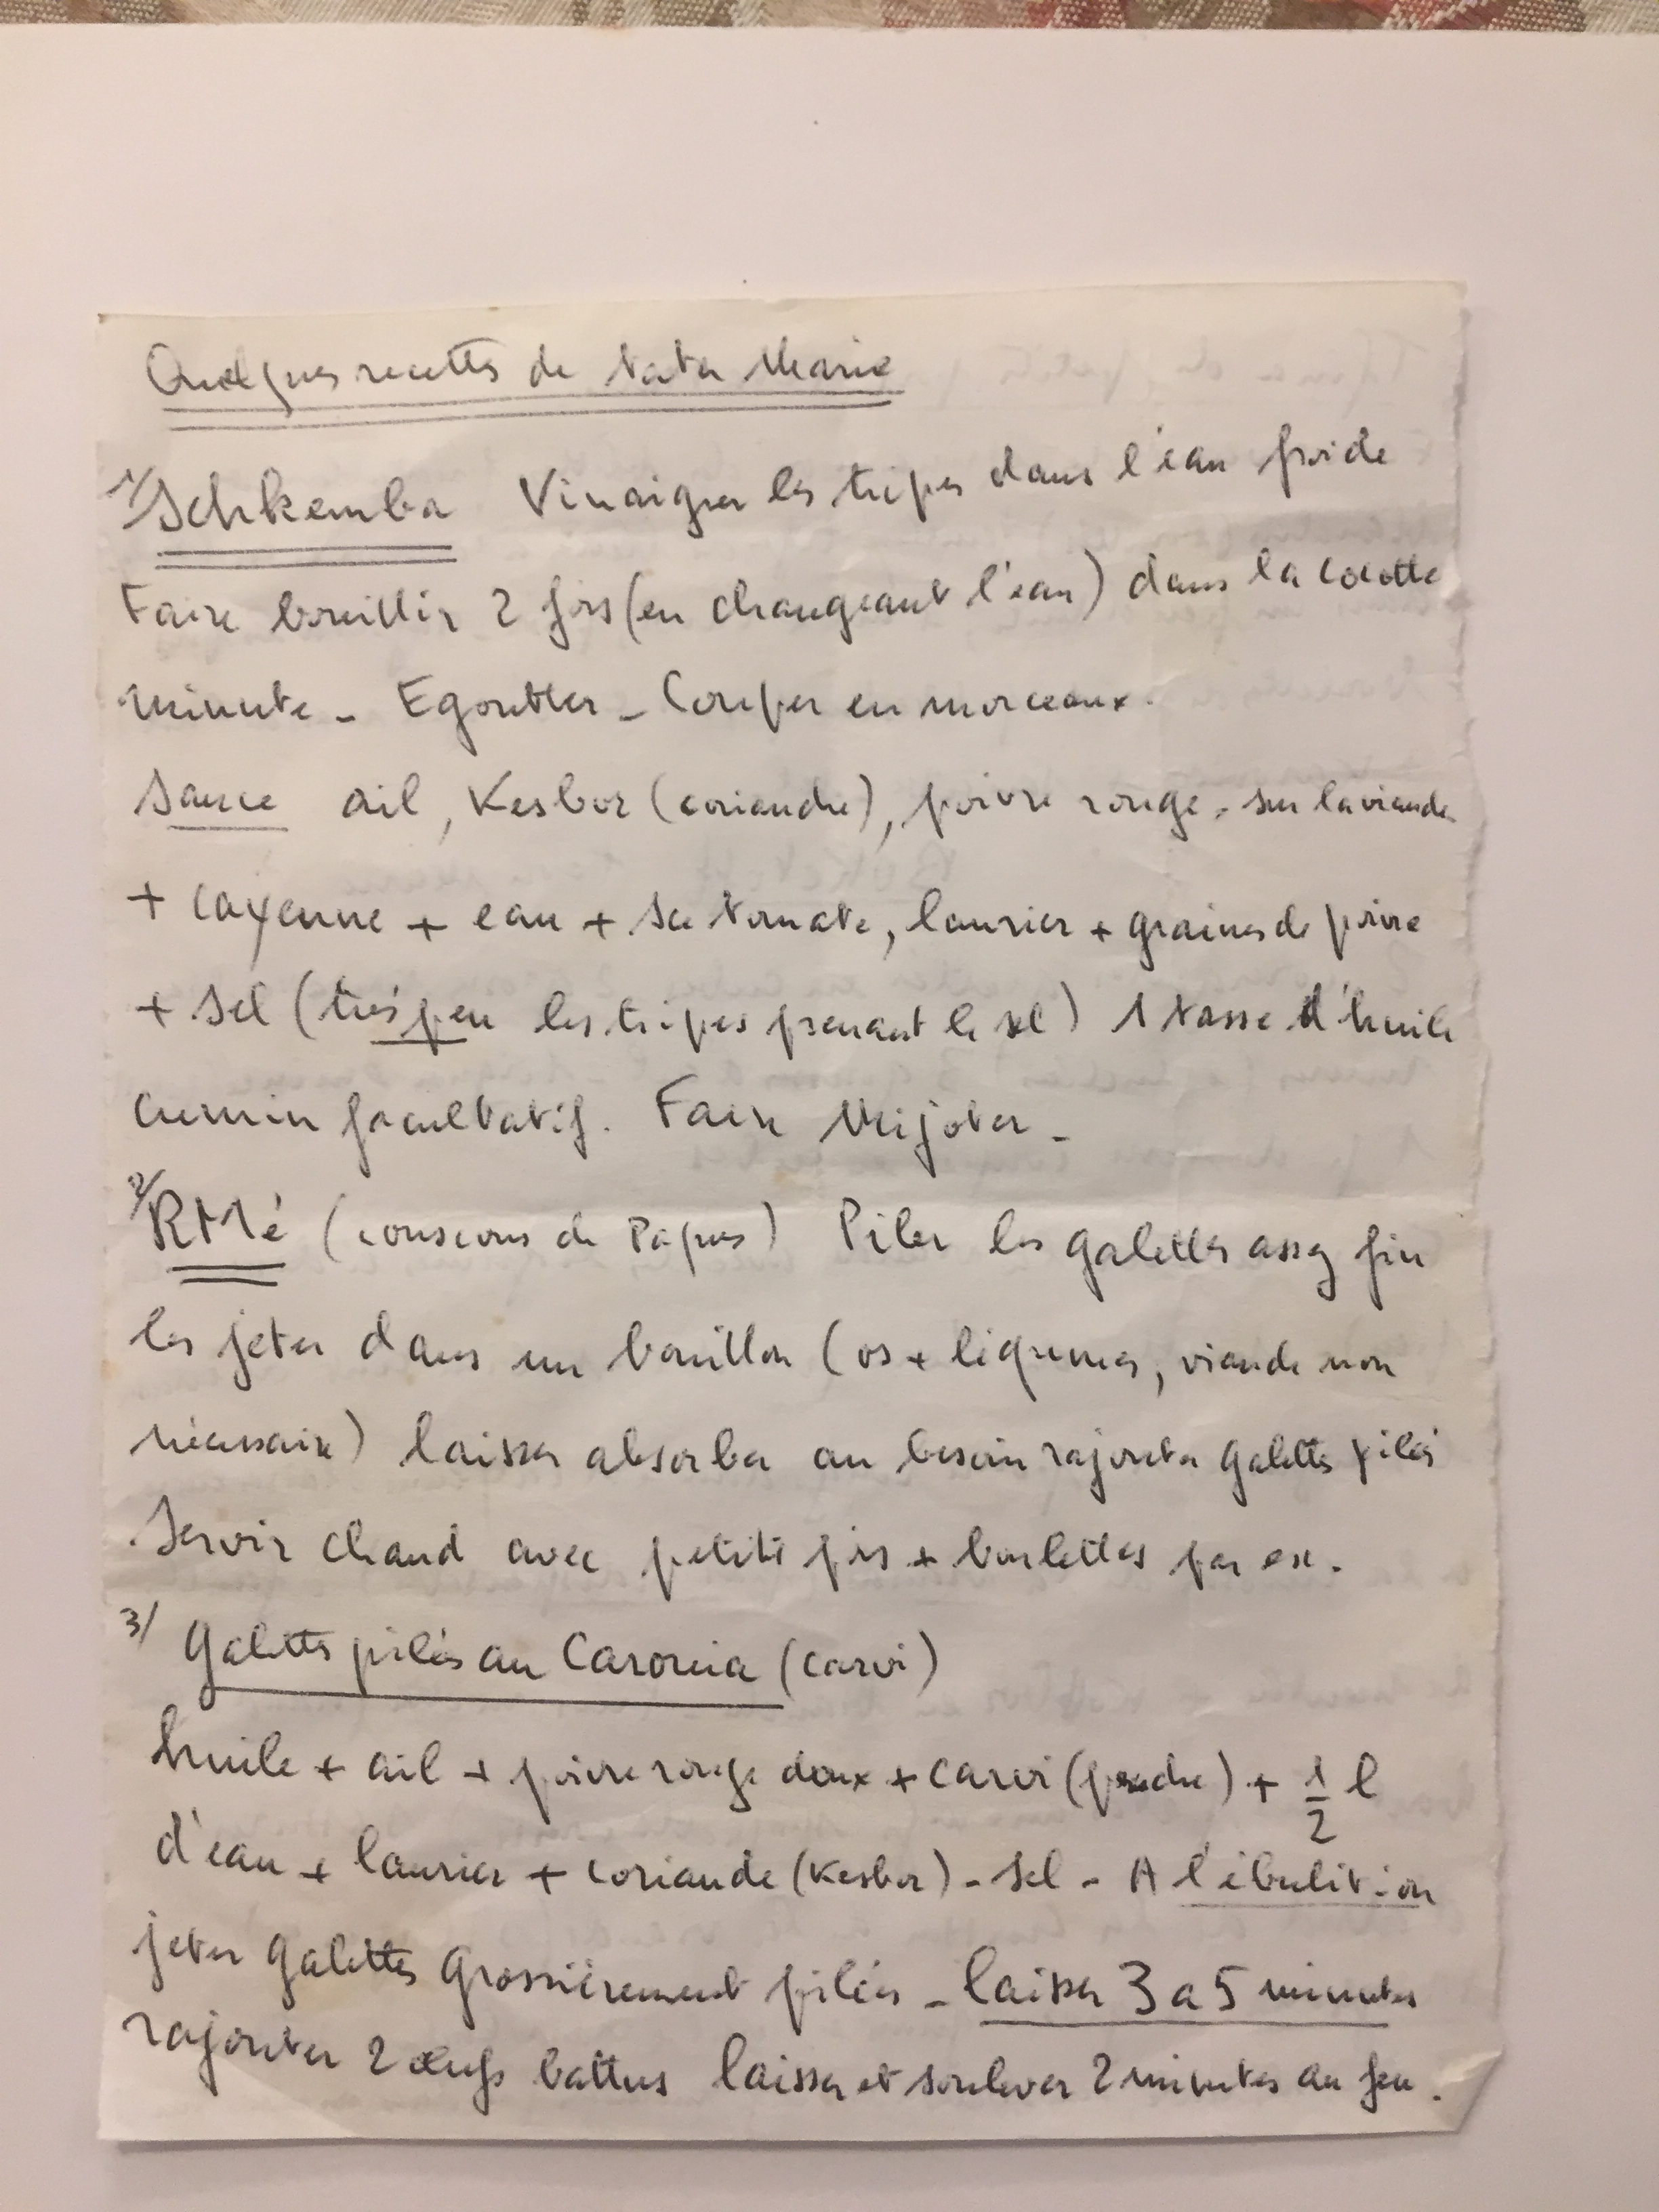 Quelques recettes de tata Marie
1/ Schkemba Vinaigrer les tripes dans l'eau froide
Faire bouillir 2 fois (en changeant l'eau) dans la cocotte
minute - Egoutter - Couper en morceaux.
Sauce ail, Kesbor (coriandre), poivre rouge - sur la viande
+ Cayenne + eau + sce tomate, laurier + graines de poivre
+ Sel (très peu les tripes prenant le sel) 1 tasse d'huile
cumin facultatif. Faire Mijoter -
2/ RMé (couscous de Pâques) Piler les galettes assez fin
les jeter dans un bouillon (os + légumes, viande non
nécessaire) laisser absorber au besoin rajouter galettes pilés
Servir chaud avec petits pois + boulettes par ex.
3/ Galettes pilés au Carouia (carvi)
huile + ail + poivre rouge doux + carvi (poudre) + 1/2 l
d'eau + laurier + coriande (Kesbor) - sel - A l'ébulition
jeter galettes grossièrement pilées - laisser 3 a 5 minutes
rajouter 2 œufs battus laisser et soulever 2 minutes au feu.